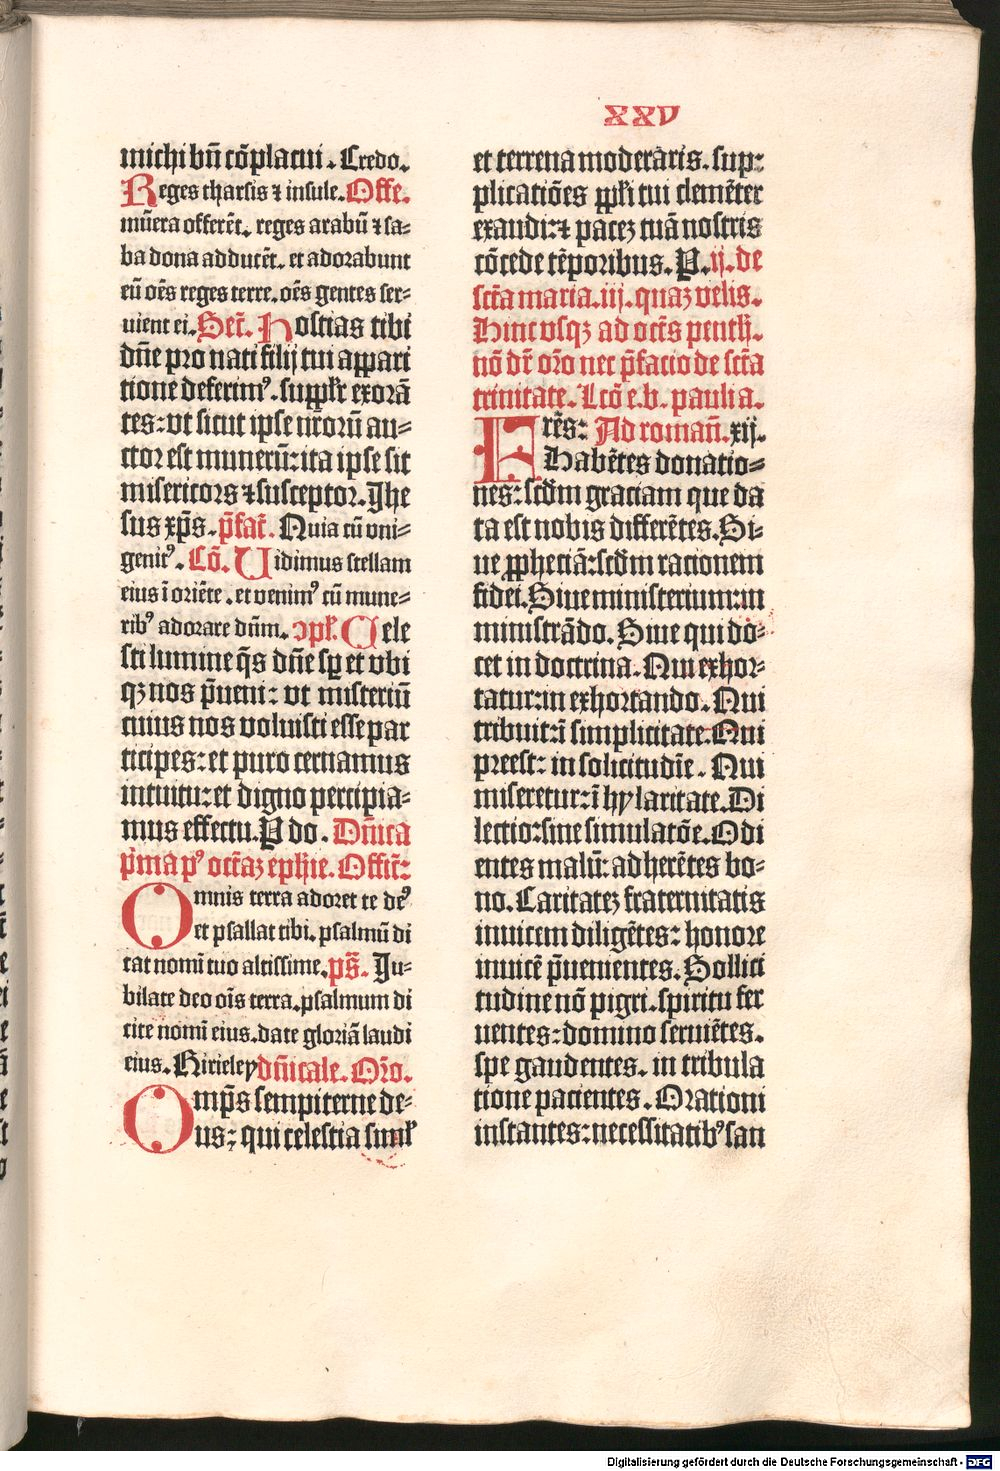 xxv
michi bn̄ cōplacui. Credo.
Reges tharsis ⁊ insule. Offe.
mūera offerēt. reges arabū ⁊ sa=
ba dona adducēt. et adorabunt
eū oēs reges terre. oēs gentes ser=
uient ei. Secr̄. Hostias tibi
dn̄e pro nati filij tui appari
tione deferimꝰ. suppłr exorā
tes: vt sicut ipse nr̄orū au=
ctor est munerū: ita ipse sit
misericors ⁊ susceptor. Jhe
sus xp̄s. p̄fat̄. Quia cū vni=
genitꝰ. Cō. Uidimus stellam
eius ī oriēte. et venimꝰ cū mune=
ribꝰ adorare dn̄m. ꝯpł. Cele
sti lumine q̄s dn̄e sꝑ et vbi
qꝫ nos p̄ueni: vt misteriū
cuius nos voluisti esse par
ticipes: et puro cernamus
intuitu: et digno percipia=
mus effectu. P do. Dn̄ica
p̄ma pꝰ octaꝫ epɦie. Offic̄:
Omnis terra adoret te deꝰ
et psallat tibi. psalmū di
cat nomī tuo altissime. ps̄. Ju=
bilate deo oīs terra. psalmum di
cite nomī eius. date gloriā laudi
eius. Kirieley dn̄icale. Or̄o.
Omp̄s sempiterne de=
us: qui celestia simł
et terrena moderāris. sup:
plicatiōes ꝓpłi tui clemēter
exaudi: ⁊ paceꝫ tuā nostris
cōcede tēporibus. P. ij. de
sct̄a maria. iij. quaꝫ velis.
Hinc vsqꝫ ad oct̄s pentɦ.
nō dr̄ or̄o nec p̄facio de sct̄a
trinitate. Lcō e. b. pauli a.
Frēs: Ad roman̄. xij.
Habētes donatio=
nes: scd̄m graciam que da
ta est nobis differētes. Si=
ue ꝓpheciā: scd̄m racionem
fidei. Siue ministerium: in
ministrādo. Siue qui do:
cet in doctrina. Qui exhor=
tatur: in exhortando. Qui
tribuit: ī simplicitate. Qui
preest: in solicitudīe. Qui
miseretur: ī hylaritate. Di
lectio: sine simulatōe. Odi
entes malū: adherētes bo=
no. Caritateꝫ fraternitatis
inuicem diligētes: honore
inuicē p̄uenientes. Sollici
tudine nō pigri. spiritu fer
uentes: domino seruiētes.
spe gaudentes. in tribula
tione pacientes. Orationi
instantes: necessitatibꝰ san
Digitalisierung gefördert durch die Deutsche Forschungsgemeinschaft - DFG